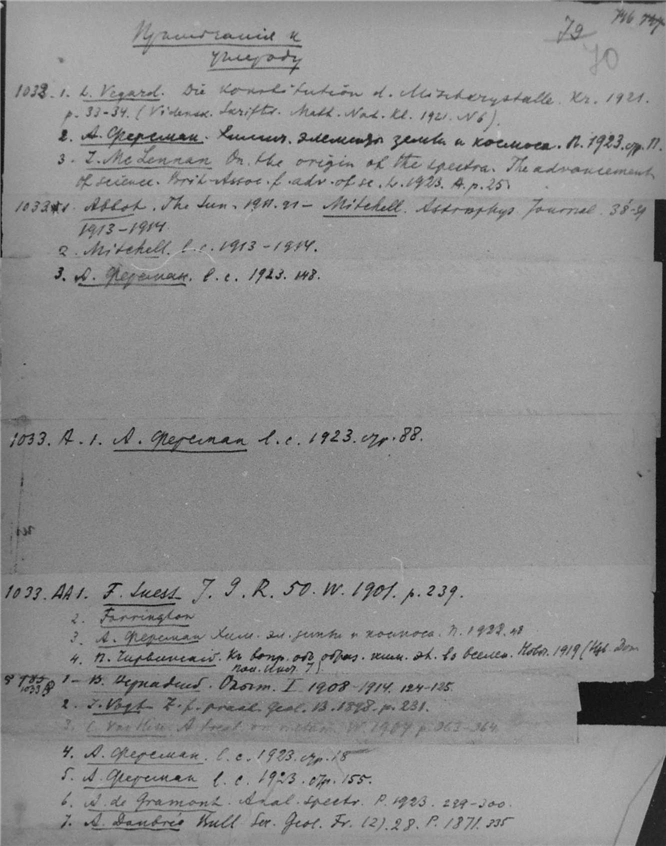 Примечания к
углероду
70
1033. 1. L. Vegard. Die Konstitution d. Mischkrystalle. Kr. 1921.
p. 33-34. (Vidensk. Skrifts. Math. Nat. Kl. 1921. N 6).
2. А. Ферсман. Химич. элементы земли и космоса. П. 1923. стр.
3. J. McLennan On the origin of the spectra. The advancement
of science. Brit. Assoc. f. adv. of sc. L. 1923. A. p. 25.
1033 1. Abbot. The Sun. 1911. 91 – Mitchell. Astrophys. Journal. 38-39
1913-1914
2. Mitchell. l. c. 1913-1914.
3. А. Ферсман. l. c. 1923. 148.
1033. A. 1. А. Ферсман l. c. 1923. стр. 88.
1033. AA 1. F. Suess. J. G. R. 50. W. 1901. p. 239.
2. Farrington
3. А. Ферсман Хим. эл. земли и космоса. П. 1923.
4. П. Чирвинский. К вопр. об образ. хим. эл. во вселен. Новоч. 1919 (Изв. Дон.
Пол. Инст. 7)
1033 1 – В. Вернадский. Опыт. I. 1908-1914. 124-135.
2. J. Vogt Z. f. prakt. Geol. B. 1898. p. 231.
3. C. Van Hise. A treat. on metam. W. 1904 p. 963-964.
4. А. Ферсман. l. c. 1923. стр. 18
5. А. Ферсман l. c. 1923. стр. 155.
6. A. de Gramont. Anal. spectr. P. 1923. 299-300.
7. A. Daubrée Bull. Soc. Geol. Fr. (2). 28. P. 1871. 335